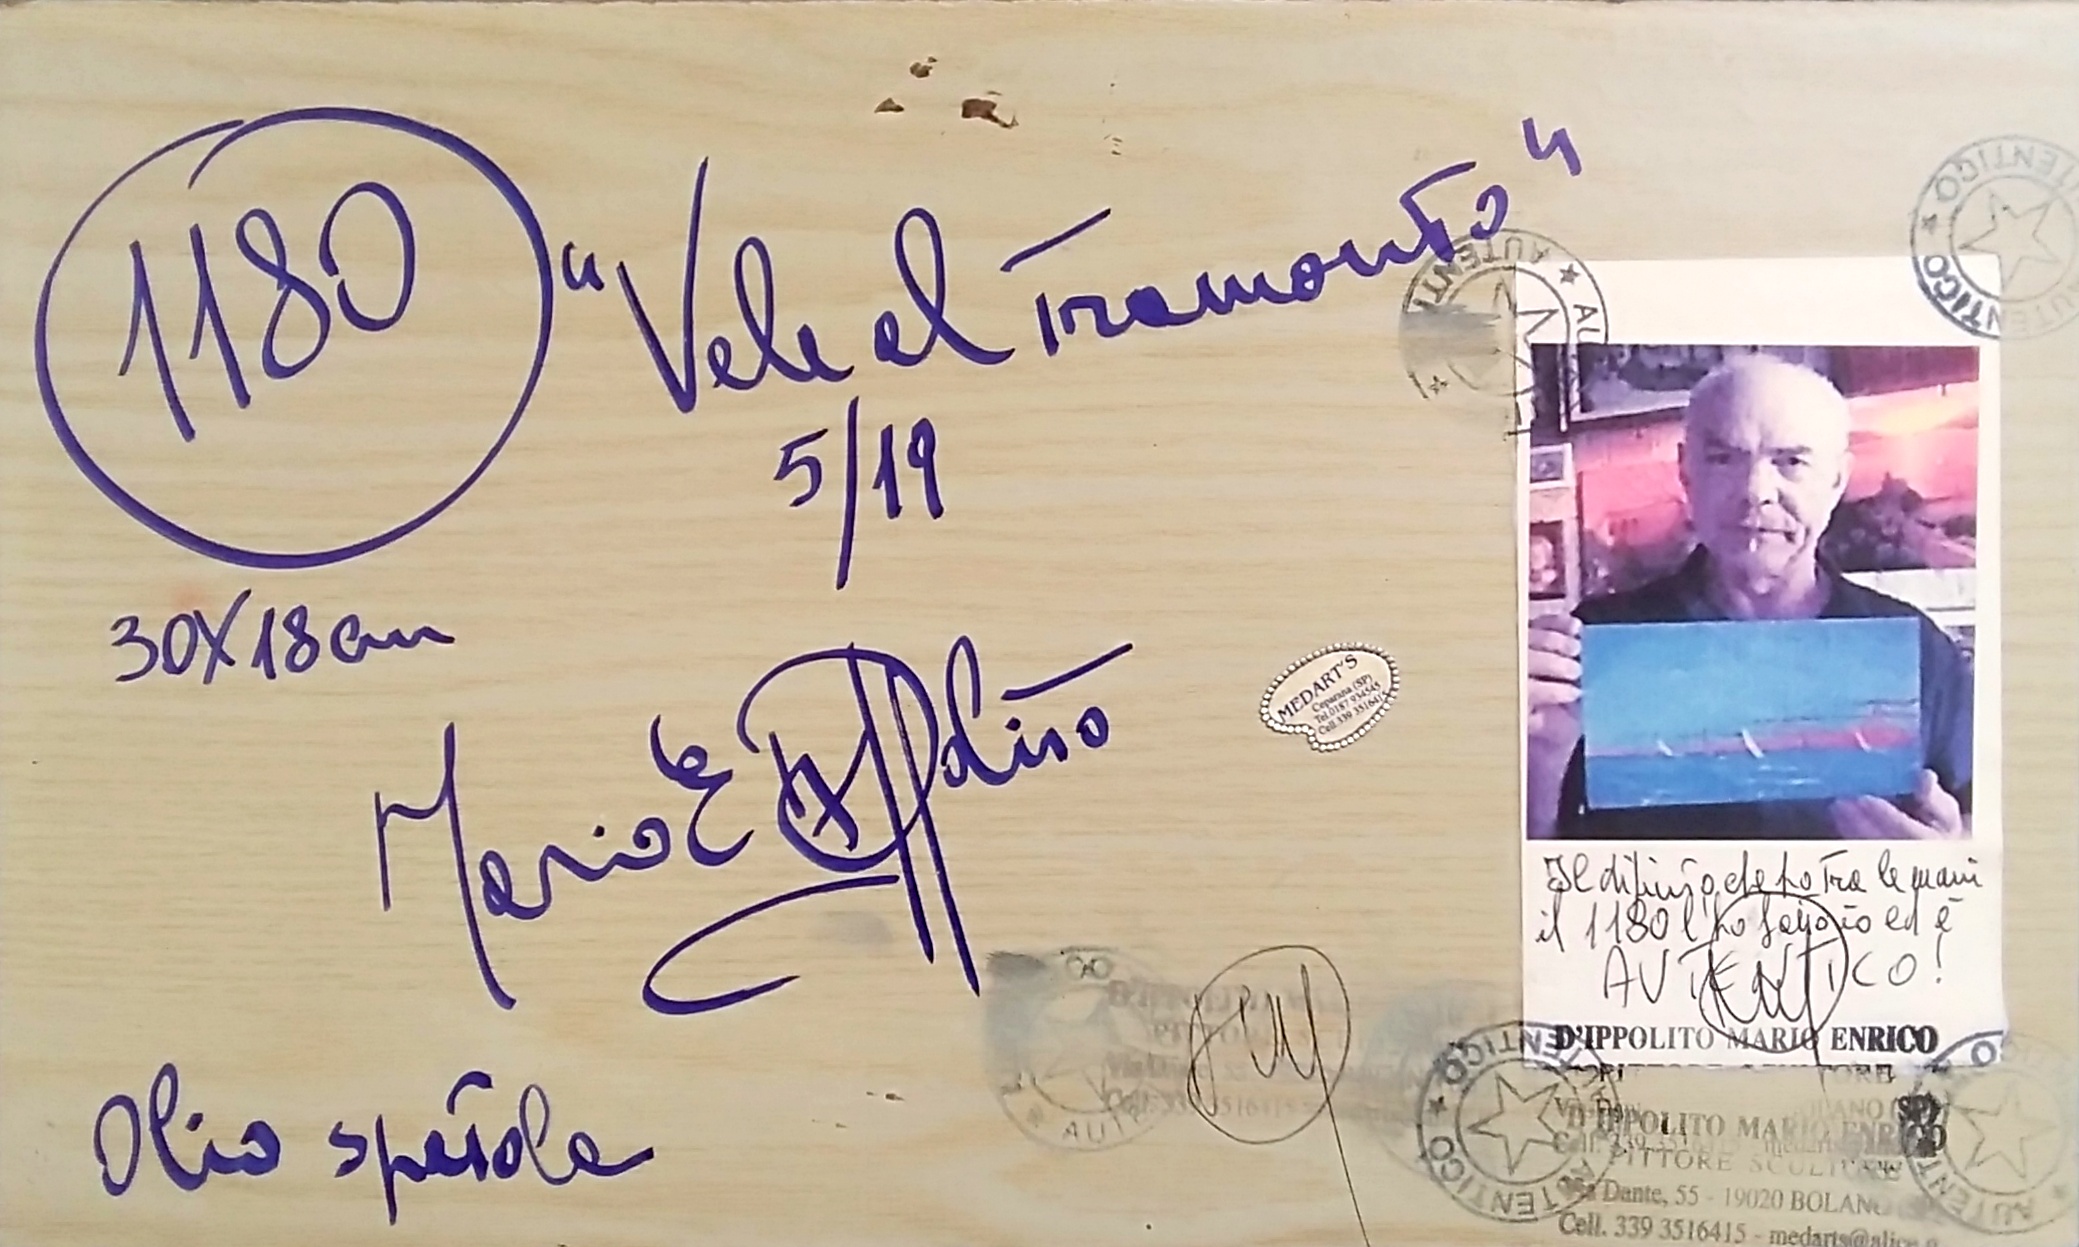 1180
"Vele al Tramonto"
5/19
30X18 cm
Mario E D'Ippolito
Olio spatola
MEDART'S
Ceparana (SP)
Tel 0187 934545
Cell. 339 3516415
Il dipinto che ho tra le mani
il 1180 l'ho fatto io ed è
AUTENTICO!
D'IPPOLITO MARIO ENRICO
D'IPPOLITO MARIO ENRICO
PITTORE SCULTORE
Via Dante, 55 - 19020 BOLANO
Cell. 339 3516415 - medarts@alice
AUTENTICO ★ AUTENTICO ★
AUTENTICO ★ AUTENTICO ★
AUTENTICO ★ AUTENTICO ★